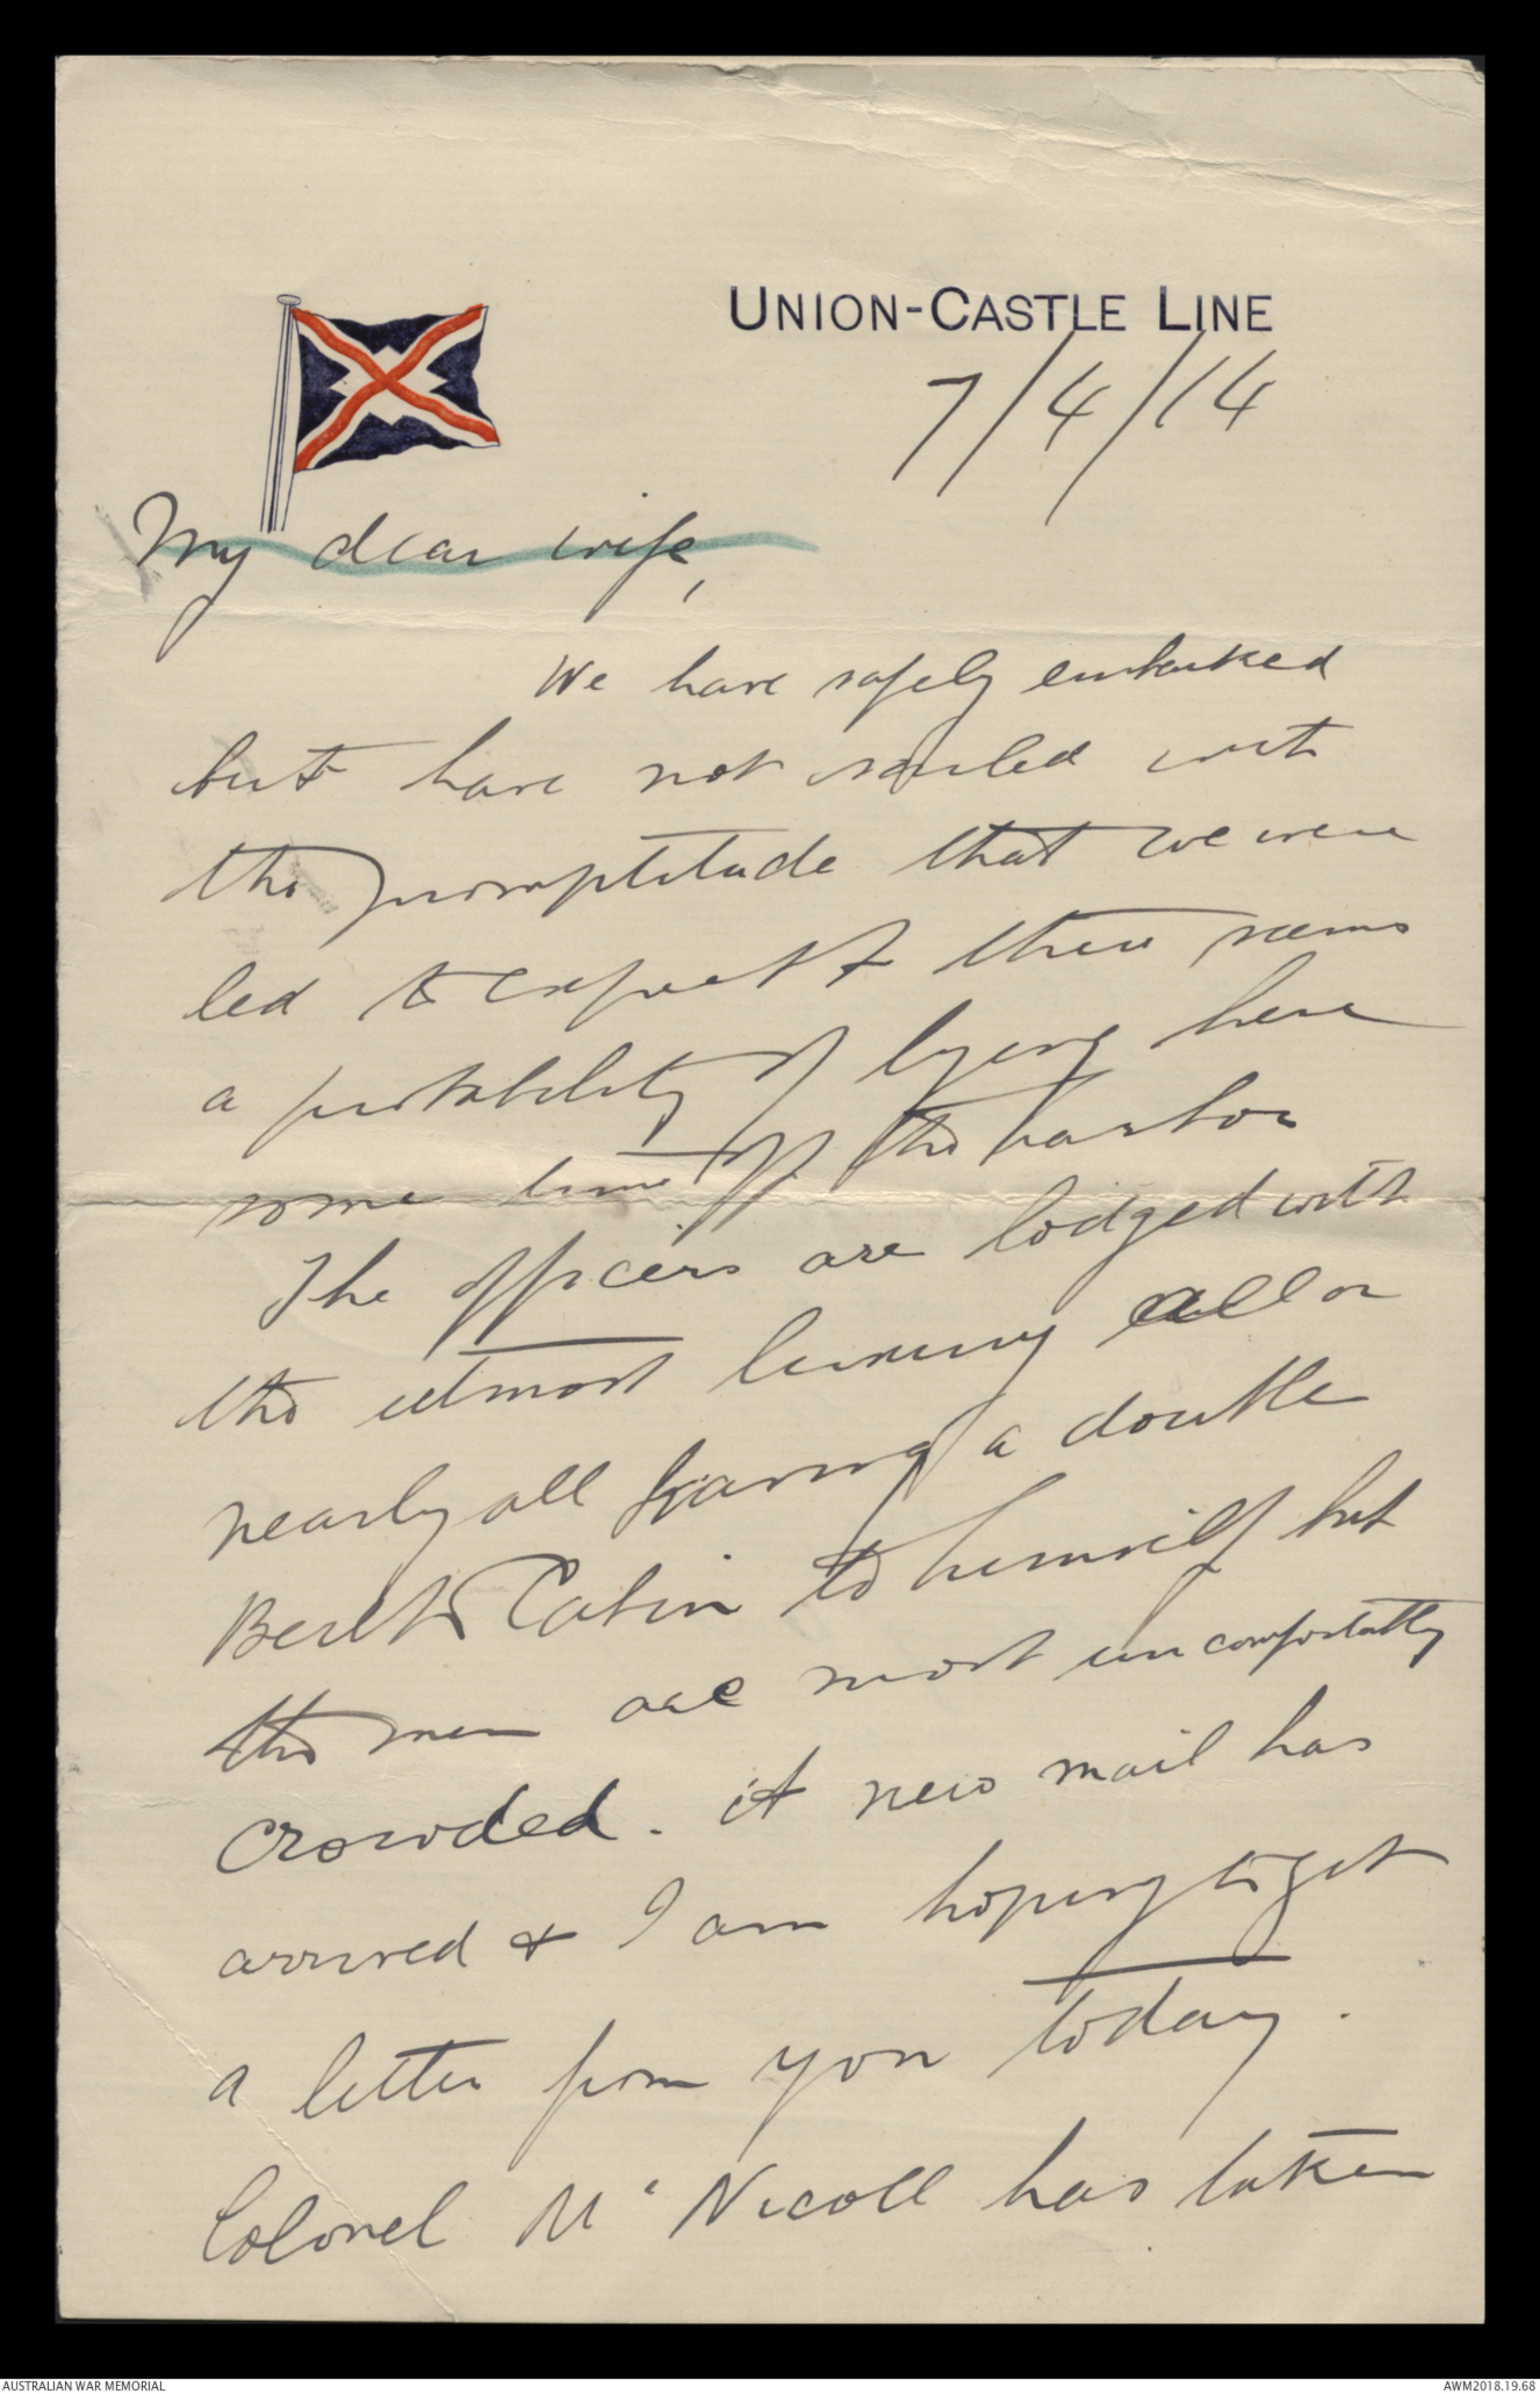 UNION-CASTLE LINE
7/4/14
My dear wife,
We have safely embarked
but have not sailed with
the promptitude that we were
led to expect & there seems
a probability of lying here
some time off the harbor
The officers are lodged with
the utmost luxury all or
nearly all having a double
Berth Cabin to himself but
the men are most uncomfortably
crowded. A new mail has
arrived & I am hoping to get
a letter from you today.
Colonel M'Nicoll has taken
AUSTRALIAN WAR MEMORIAL
AWM2018.19.68